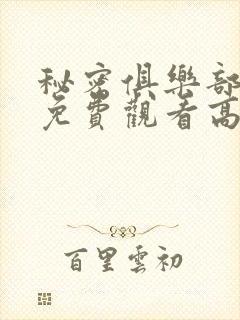 秘密俱樂部
免費觀看高
百里雲初